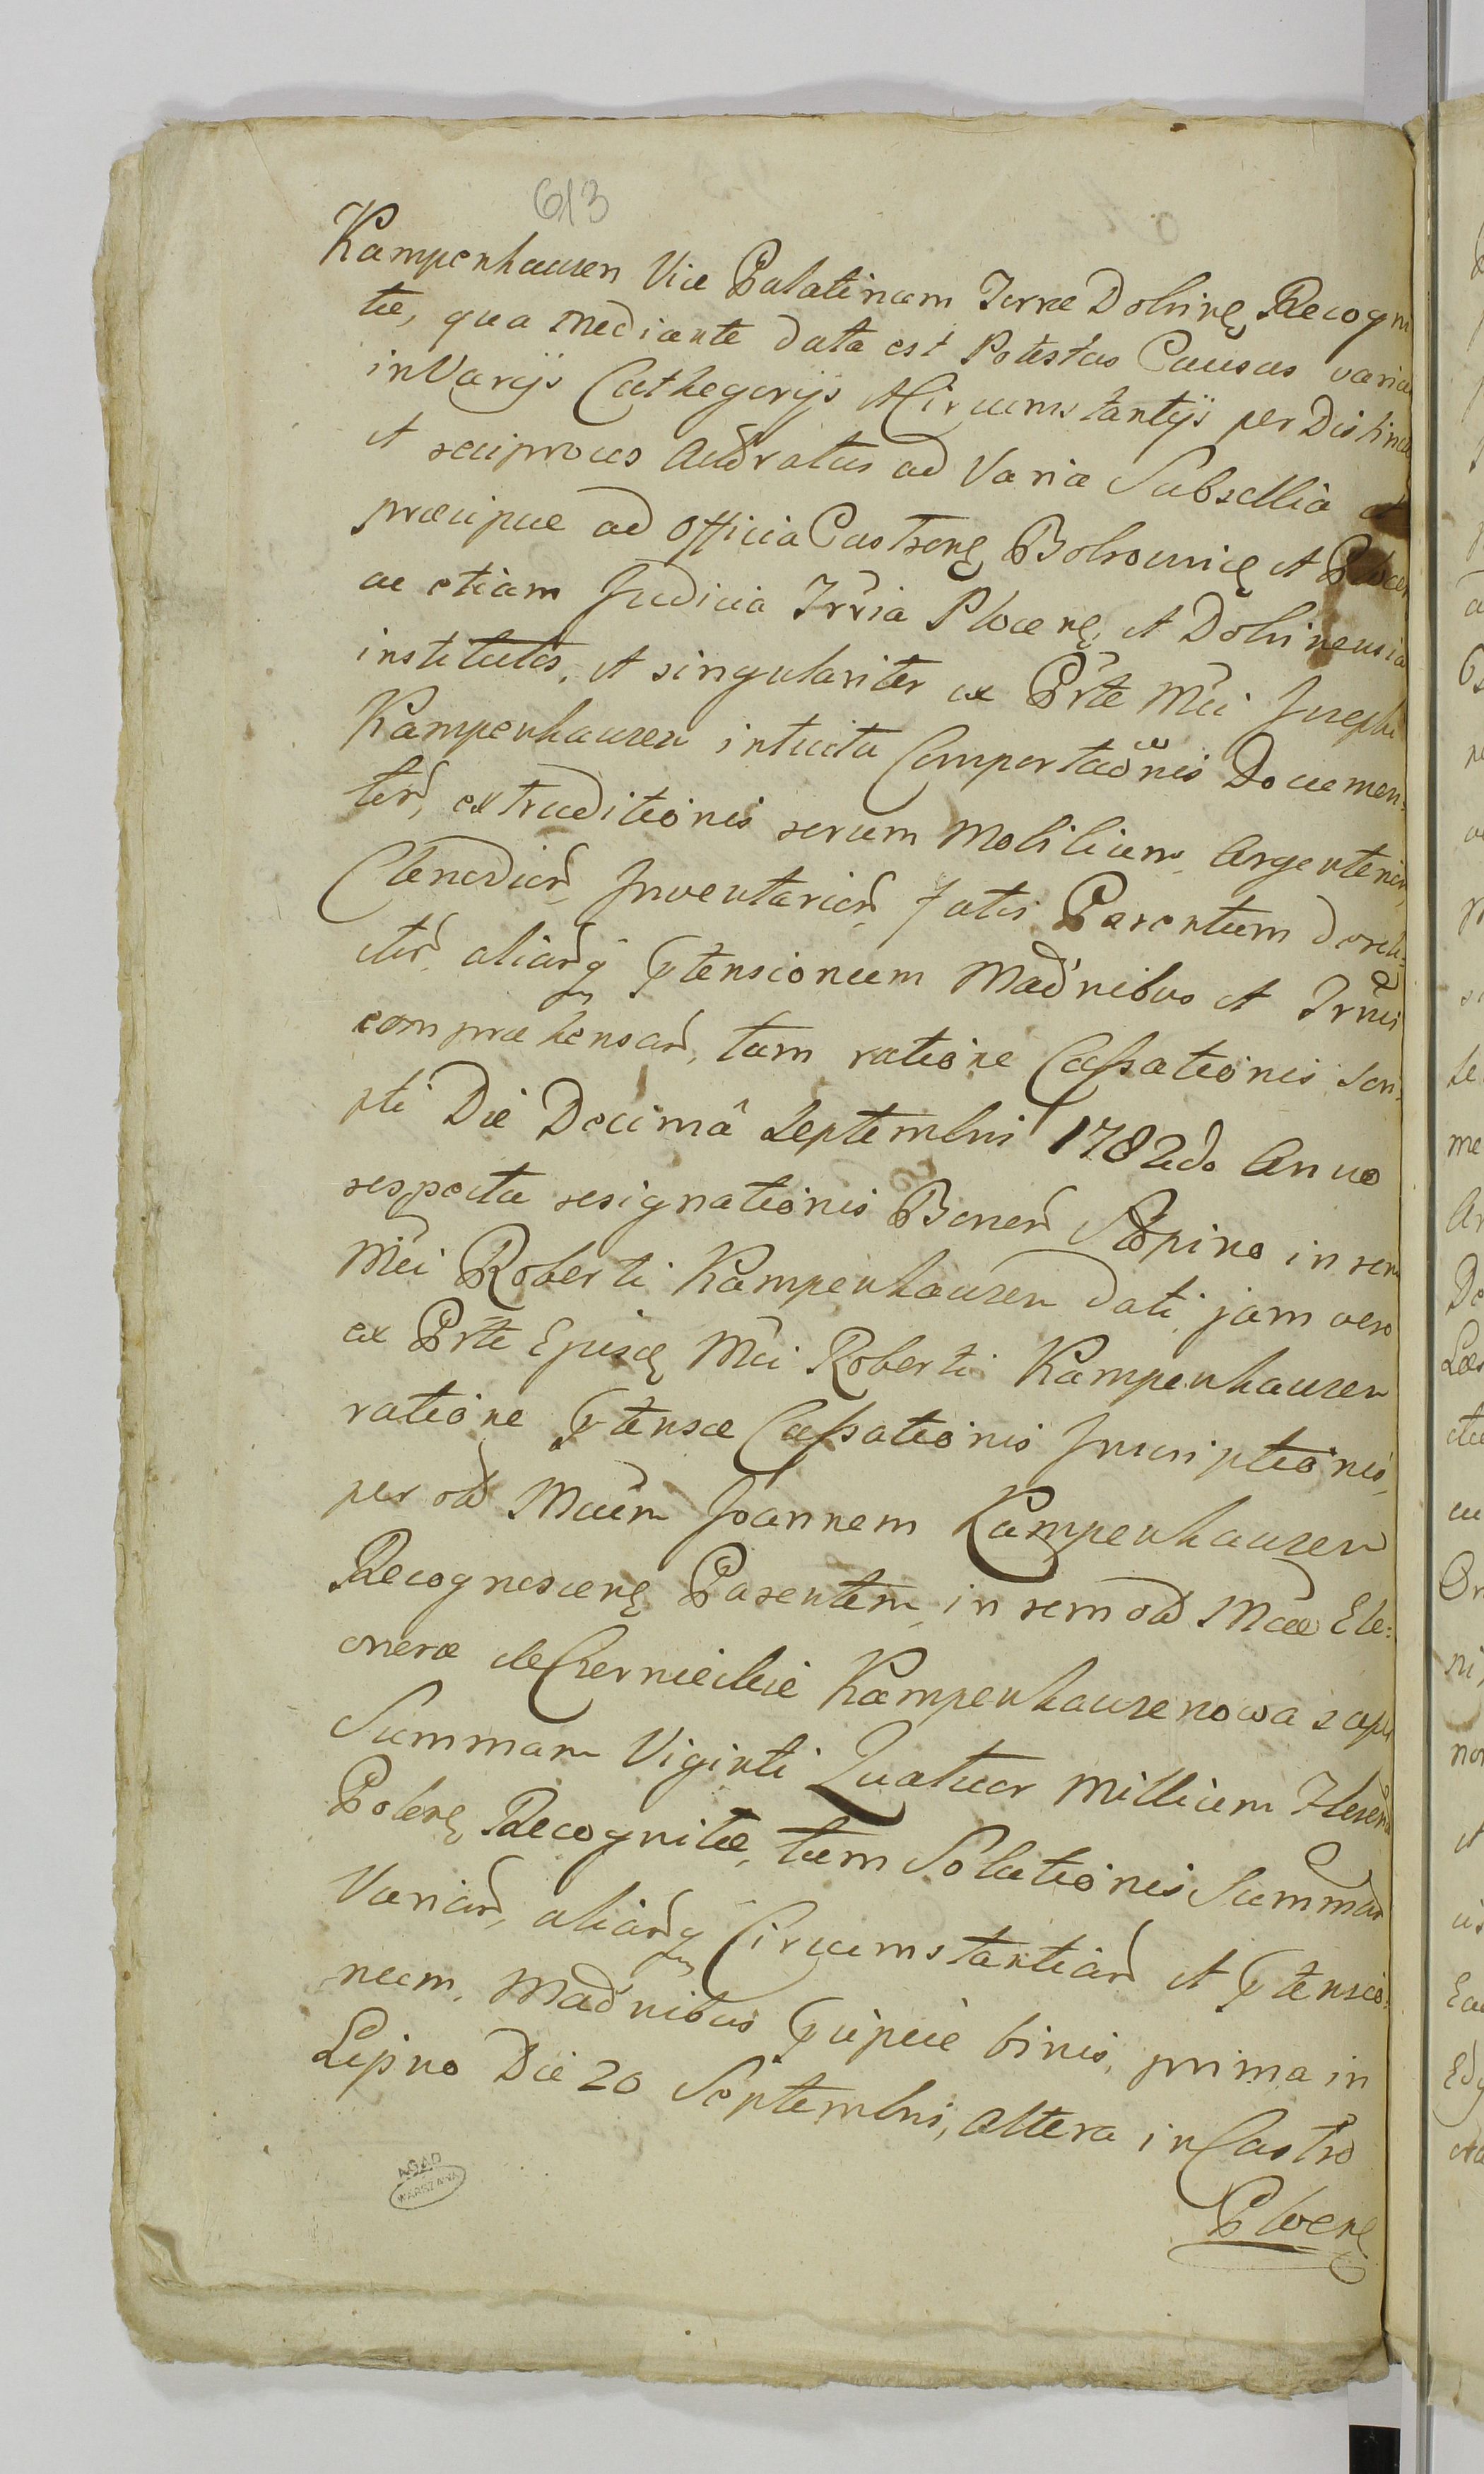 613
Kampenhausen Vice Palatinum Terræ Dobrinę Recogni
tæ, qua mediante data est Potestas Causas varias
in Varijs Cathegorijs et Circumstantijs per Distinctos
et reciprocos Actoratus ad Varia Subsellia et
præcipue ad Officia Castrenę Bobrownię et Plocen
ac etiam Judicia Trria Plocenę et Dobrinensia
institutas, et singulariter ex Prte Mci Josephi
Kampenhausen intuitu Comportaõnis Documen-
tor, extraditionis rerum Mobilium, Argenterior,
Clenodior, Inventarior, fatis Parentum dereli-
ctor, aliarq ptensionum Madnibus et Trmis
compræhensar, tum ratione Cassationis Scri-
pti Die Decimâ Septembris 1782do Anno
respectu resignationis Bonor Stopino in rem
Mci Roberti Kampenhausen dati, jam vero
ex Prte Ejusdę Mci Roberti Kampenhausen
ratione ptensæ Cassationis Inscriptionis,
per od Mcum Joannem Kampenhausen
Recognoscenę Parentem, in rem od Mcæ Ele-
onoræ de Czernieckie Kampenhausenowa super
Summam Viginti Quatuor Millium Floren
Polonę Recognitæ, tum Solutionis Summar
Variar, aliarq Circumstantiar et ptensio-
num, Madnibus pcipuè binis, prima in
Lipno Die 20 Septembris, altera in Castro
Plocenę
AGAD
WARSZAWA